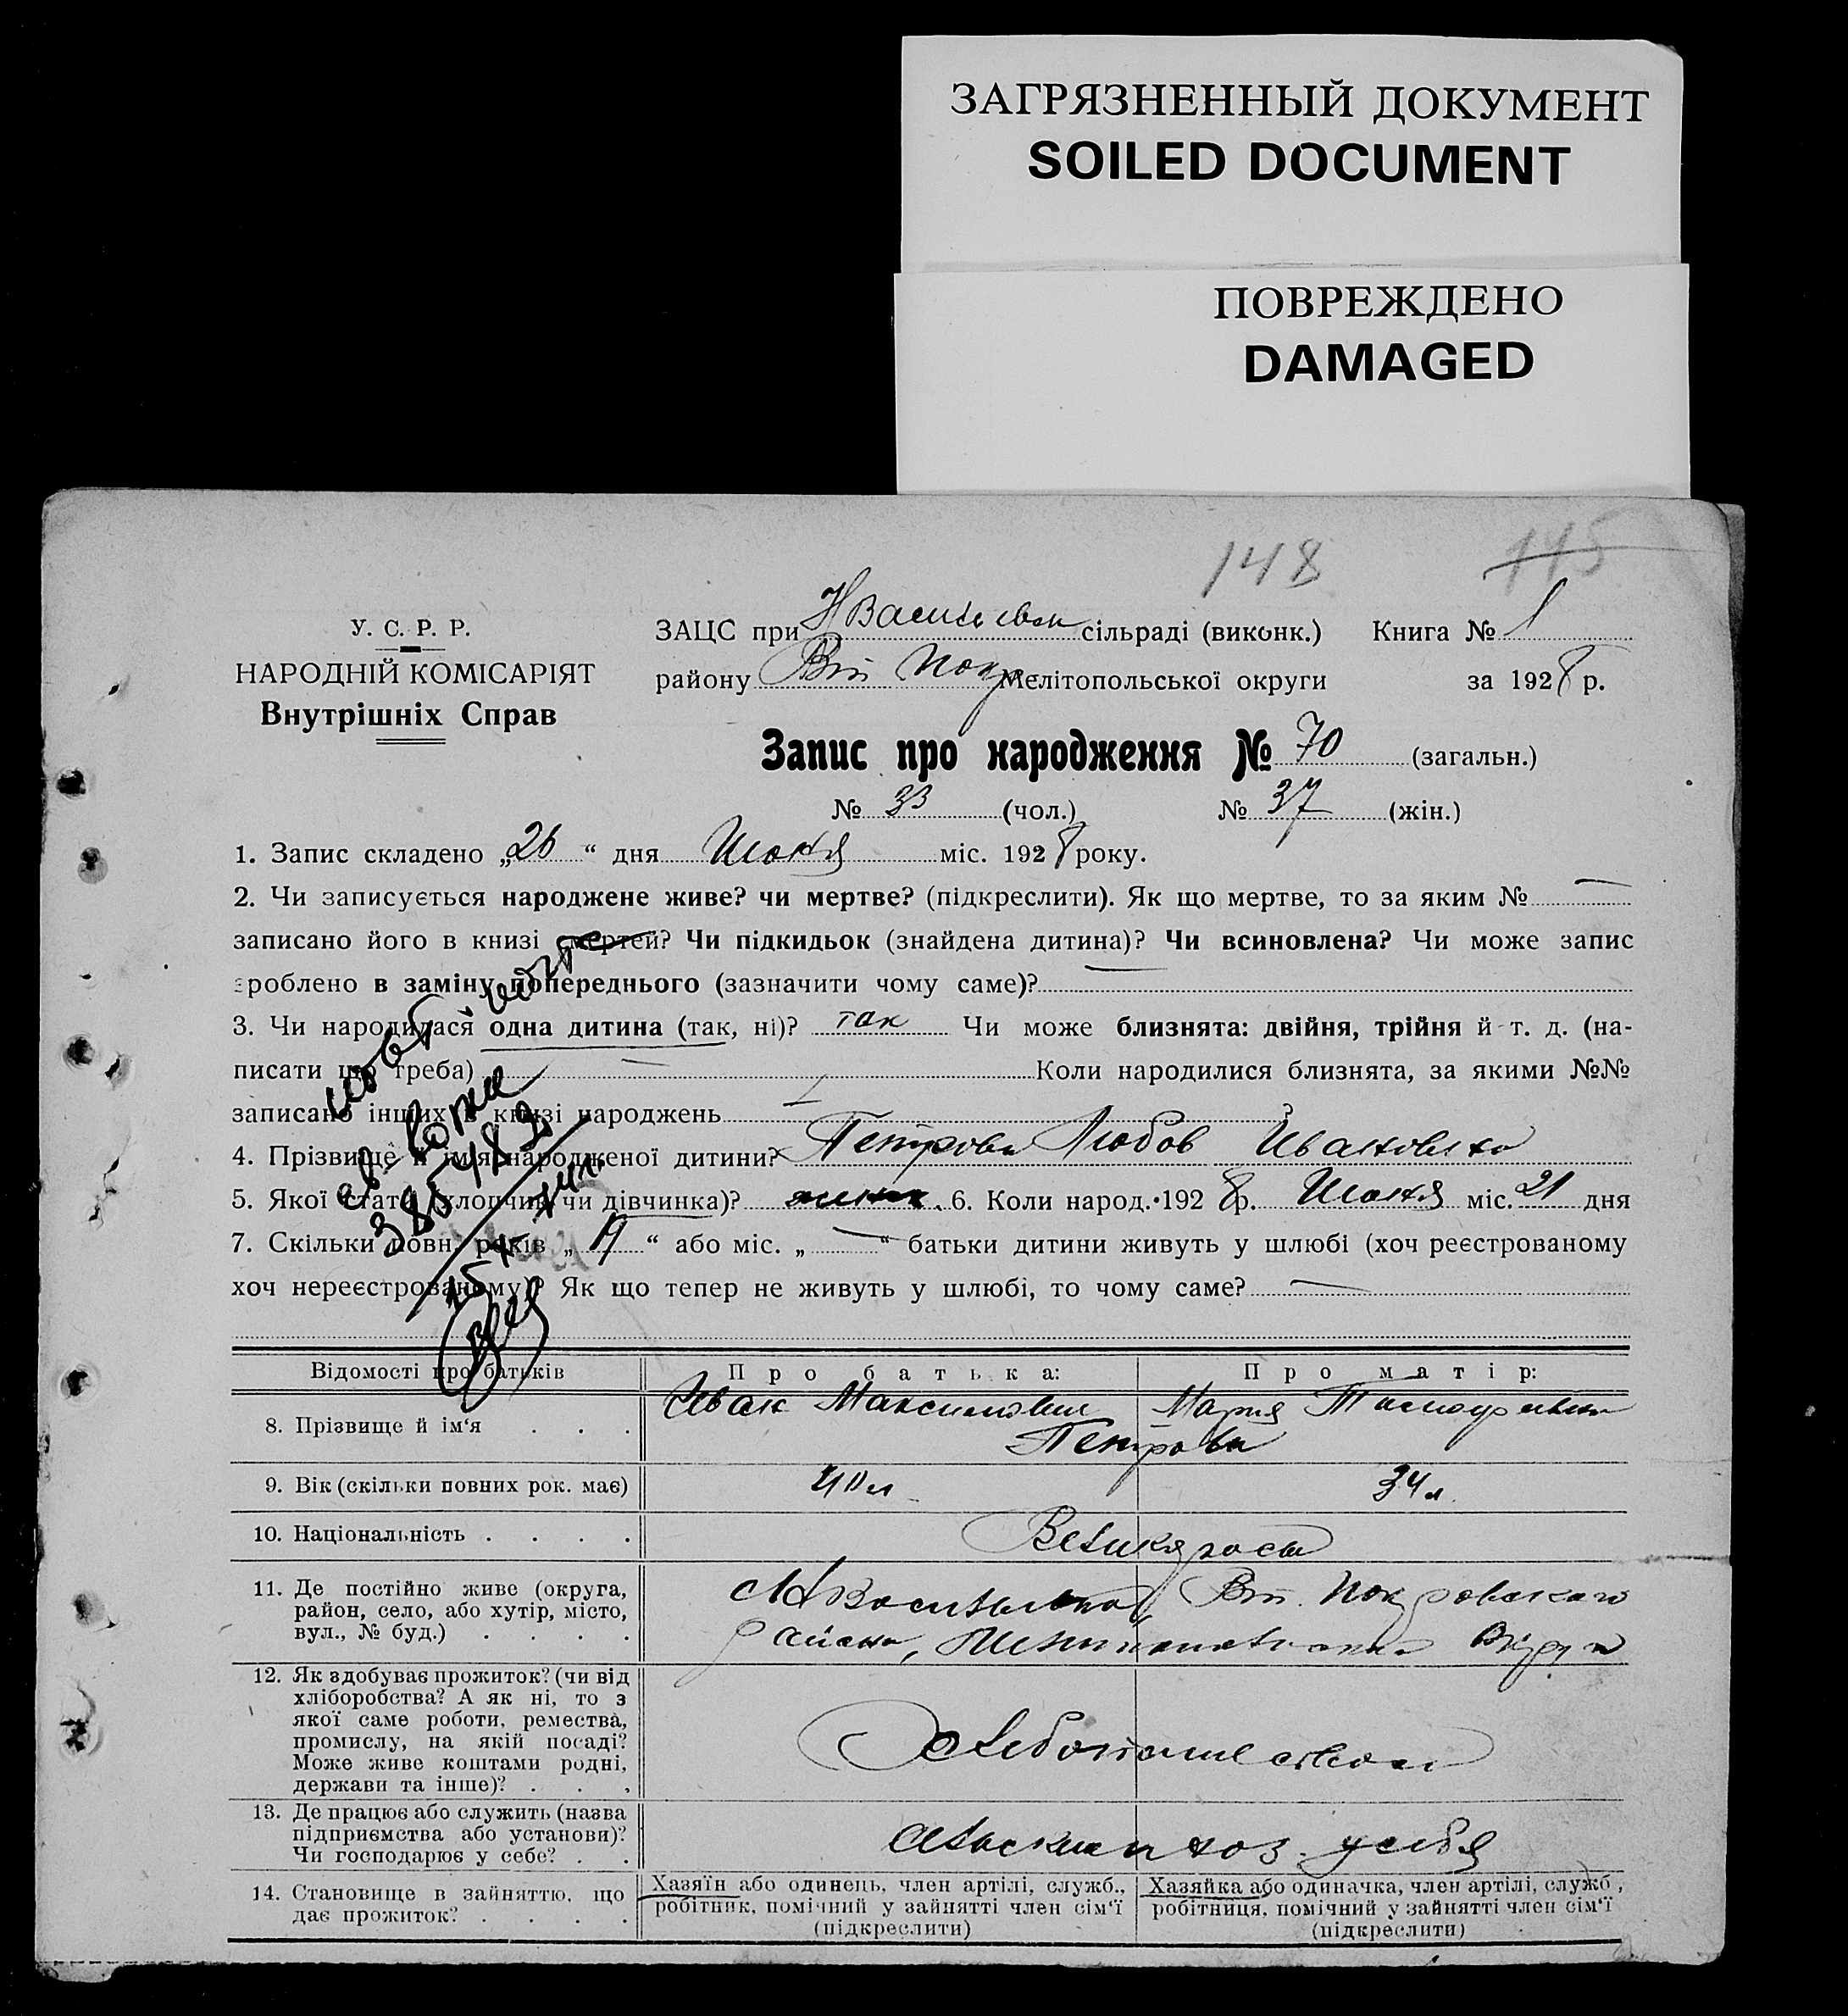 ЗАГРЯЗНЕННЫЙ ДОКУМЕНТ
SOILED DOCUMENT
ПОВРЕЖДЕНО
DAMAGED
148 115
У. С. Р. Р.
НАРОДНІЙ КОМІСАРІЯТ
Внутрішніх Справ
ЗАЦС при сільраді (виконк.) Книга № 1
району Мелітопольської округи за 1928 р.
Запис про народження № 70 (загальн.)
№ 33 (чол.) № 37 (жін.)
1. Запис складено „26“ дня Июня міс. 1928 року.
2. Чи записується народжене живе? чи мертве? (підкреслити). Як що мертве, то за яким № —
записано його в книзі смертей? Чи підкидьок (знайдена дитина)? Чи всиновлена? Чи може запис
зроблено в заміну попереднього (зазначити чому саме)?
3. Чи народилася одна дитина (так, ні)? так Чи може близнята: двійня, трійня й т. д. (на-
писати що треба) — Коли народилися близнята, за якими №№
записано інших в книзі народжень ?
4. Прізвище й ім'я народженої дитини? Петрова Любов Ивановна
5. Якої статі (хлопчик чи дівчинка)? 6. Коли народ. 1928 р. Июня міс. 21 дня
7. Скільки повн. років „19“ або міс. „—“ батьки дитини живуть у шлюбі (хоч реєстрованому
хоч нереєстрованому)? Як що тепер не живуть у шлюбі, то чому саме? —
385482
Відомості про батьків Про батька: Про матір:
8. Прізвище й ім‘я . . . Иван Максимович Мария
Петровы
9. Вік (скільки повних рок. має) 40 л 34 л.
10. Національність . . . . Великороссы
11. Де постійно живе (округа,
район, село, або хутір, місто,
вул., № буд.) . . . .
Покровского
района, Округи
12. Як здобуває прожиток? (чи від
хліборобства? А як ні, то з
якої саме роботи, ремества,
промислу, на якій посаді?
Може живе коштами родні,
держави та інше)? . . .
Хлебопашеством
13. Де працює або служить (назва
підприємства або установи)?
Чи господарює у себе? . .
хоз. у себя
14. Становище в зайняттю, що
дає прожиток? . . . .
Хазяїн або одинець, член артілі, служб.,
робітник, помічний у зайнятті член сім‘ї
(підкреслити)
Хазяйка або одиначка, член артілі, служб.,
робітниця, помічний у зайнятті член сім‘ї
(підкреслити)